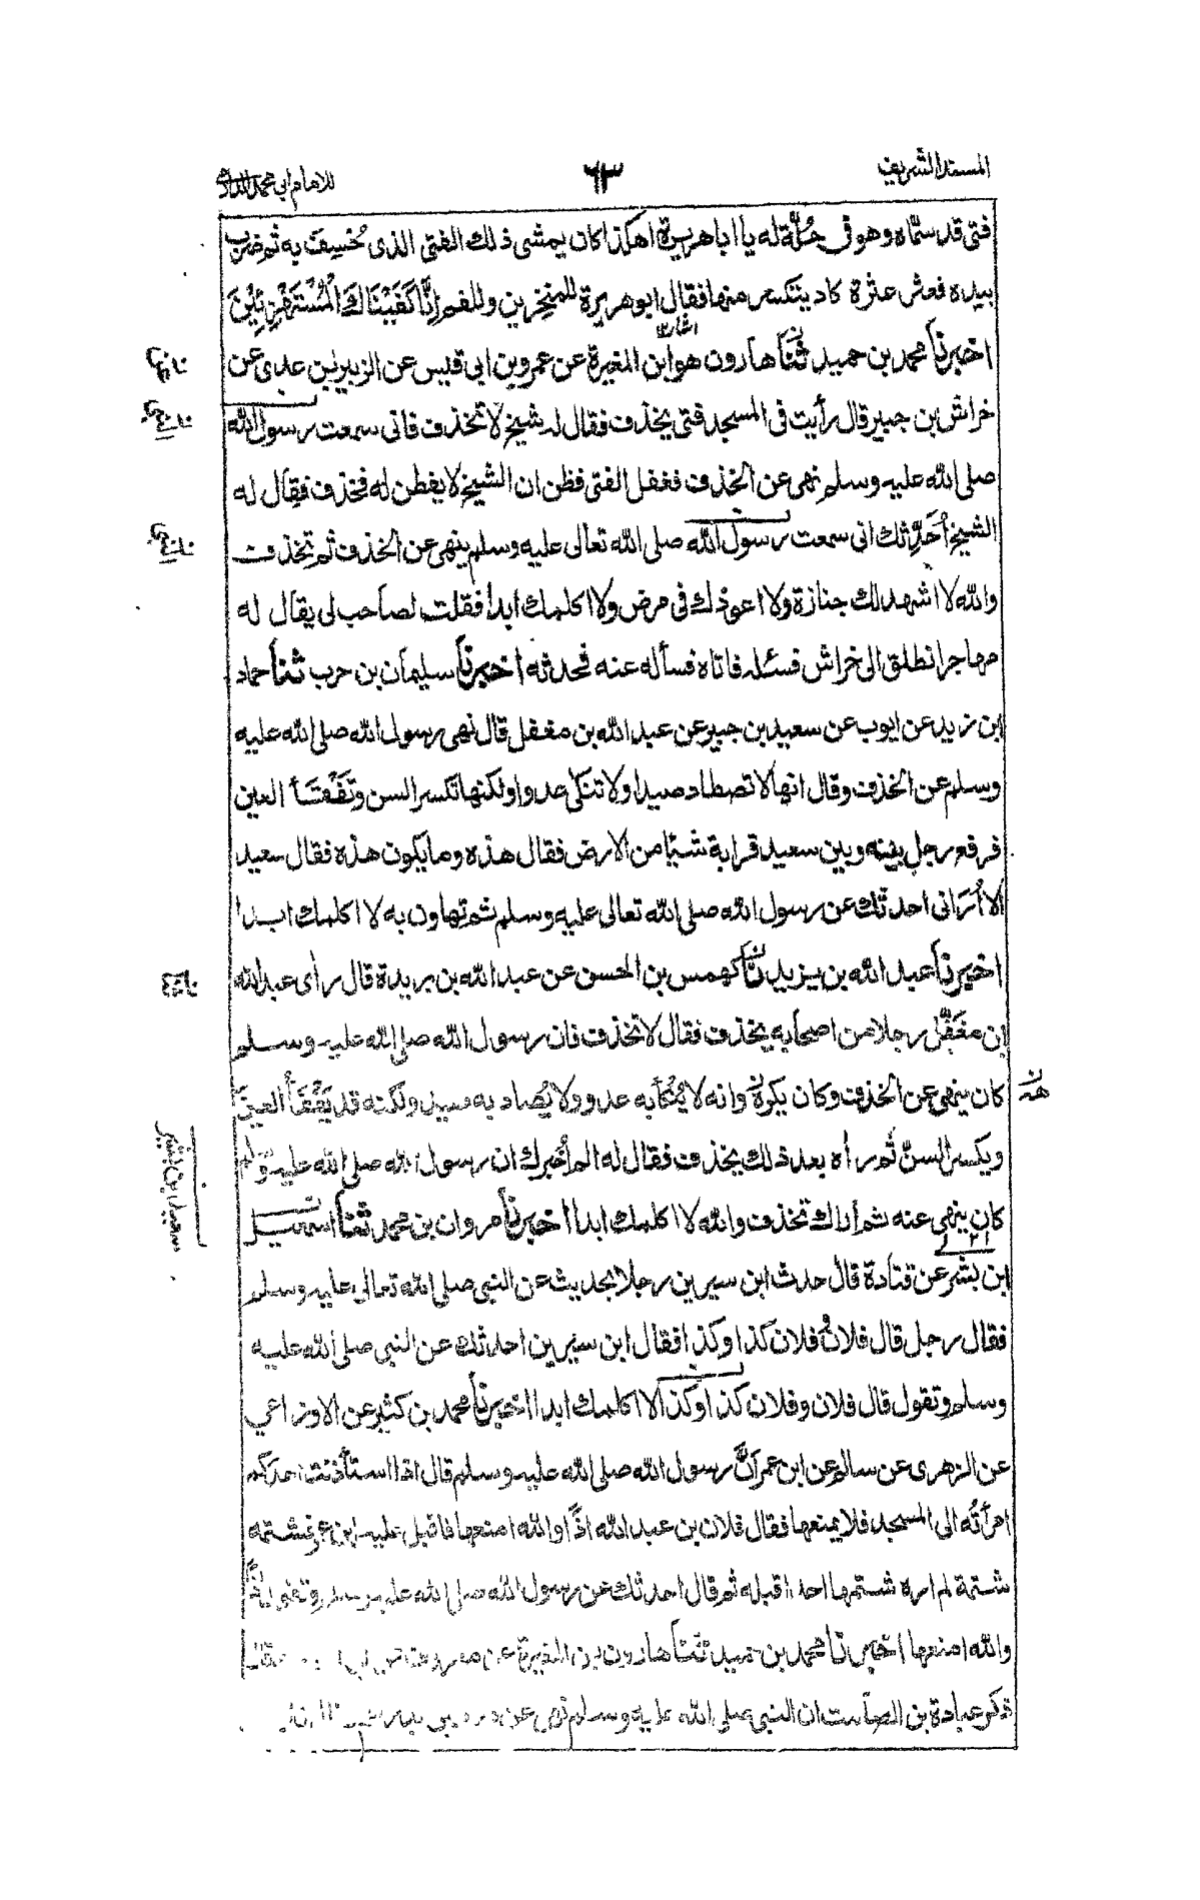 المسند الشريف
٦٣
للامام ابي محمد الدارمي
فتى قد سمّاه وهو فى حُلّة له يا ابا هريرة اهكذا كان يمشى ذلك الفتى الذى خُسِفَ به ثم ضرب
بيده فعثر عثرة كاد يتكسر منها فقال ابو هريرة للمنخرين وللفم اِنَّا كَفَيْنَاكَ الْمُسْتَهْزِئِيْنَ
اخبرنا محمد بن حميد ثنا هارون هو ابن المغيرة عن عمرو بن ابى قيس عن الزبير بن عدى عن
خراش بن جبير قال رأيت فى المسجد فتى يخذف فقال له شيخ لا تخذف فانى سمعت رسول الله
صلى الله عليه وسلم نهى عن الخذف فغفل الفتى فظن ان الشيخ لا يفطن له فخذف فقال له
الشيخ أُحَدِّثك انى سمعت رسول الله صلى الله تعالى عليه وسلم ينهى عن الخذف ثم تخذف
والله لا اشهد لك جنازة ولا اعودك فى مرض ولا اكلمك ابدا فقلت لصاحب لى يقال له
مهاجر انطلق الى خراش فسئله فاتاه فسأله عنه فحدثه اخبرنا سليمان بن حرب ثنا حماد
ابن زيد عن ايوب عن سعيد بن جبير عن عبد الله بن مغفل قال نهى رسول الله صلى الله عليه
وسلم عن الخذف وقال انها لا تصطاد صيدا ولا تنكى عدوا ولكنها تكسر السن وتَفْقَأ العين
فرفع رجل بينه وبين سعيد قرابة شيئا من الارض فقال هذه وما يكون هذه فقال سعيد
الا اُرَانى احدثك عن رسول الله صلى الله تعالى عليه وسلم ثم تهاون به لا اكلمك ابدا
اخبرنا عبد الله بن يزيد ثنا كهمس بن الحسن عن عبد الله بن بريدة قال رأى عبد الله
ابن مغفل رجلا من اصحابه يخذف فقال لا تخذف فان رسول الله صلى الله عليه وسلم
كان ينهى عن الخذف وكان يكره وانه لا يُنْكأ به عدو ولا يُصاد به صيد ولكنه قد يَفْقَأُ العينَ
ويكسر السنّ ثم رأه بعد ذلك يخذف فقال له الم أُخبرك ان رسول الله صلى الله عليه وسلم
كان ينهى عنه ثم أراك تخذف والله لا اكلمك ابدا اخبرنا مروان بن محمد ثنا اسمعيل
ابن بشر عن قتادة قال حدث ابن سيرين رجلا بحديث عن النبى صلى الله تعالى عليه وسلم
فقال رجل قال فلان و فلان كذا وكذا فقال ابن سيرين احدثك عن النبى صلى الله عليه
وسلم وتقول قال فلان وفلان كذا وكذا لا اكلمك ابدا اخبرنا محمد بن كثير عن الاوزاعي
عن الزهرى عن سالم عن ابن عمر اَنَّ رسول الله صلى الله عليه وسلم قال اذا استأذنت احدكم
امرأتُه الى المسجد فلا يمنعها فقال فلان بن عبد الله اذًا والله امنعها فاقبل عليه ابن عمر فشتمه
شتمة لم اره شتمها احدا قبله ثم قال احدثك عن رسول الله صلى الله عليه وسلم وتقول اذًا
والله امنعها اخبرنا محمد بن حميد ثنا هارون بن المغيرة عن معروف عن ابى
ذكر عبادة بن الصامت ان النبى صلى الله عليه وسلم نهى عن
سعيد ابن بشير